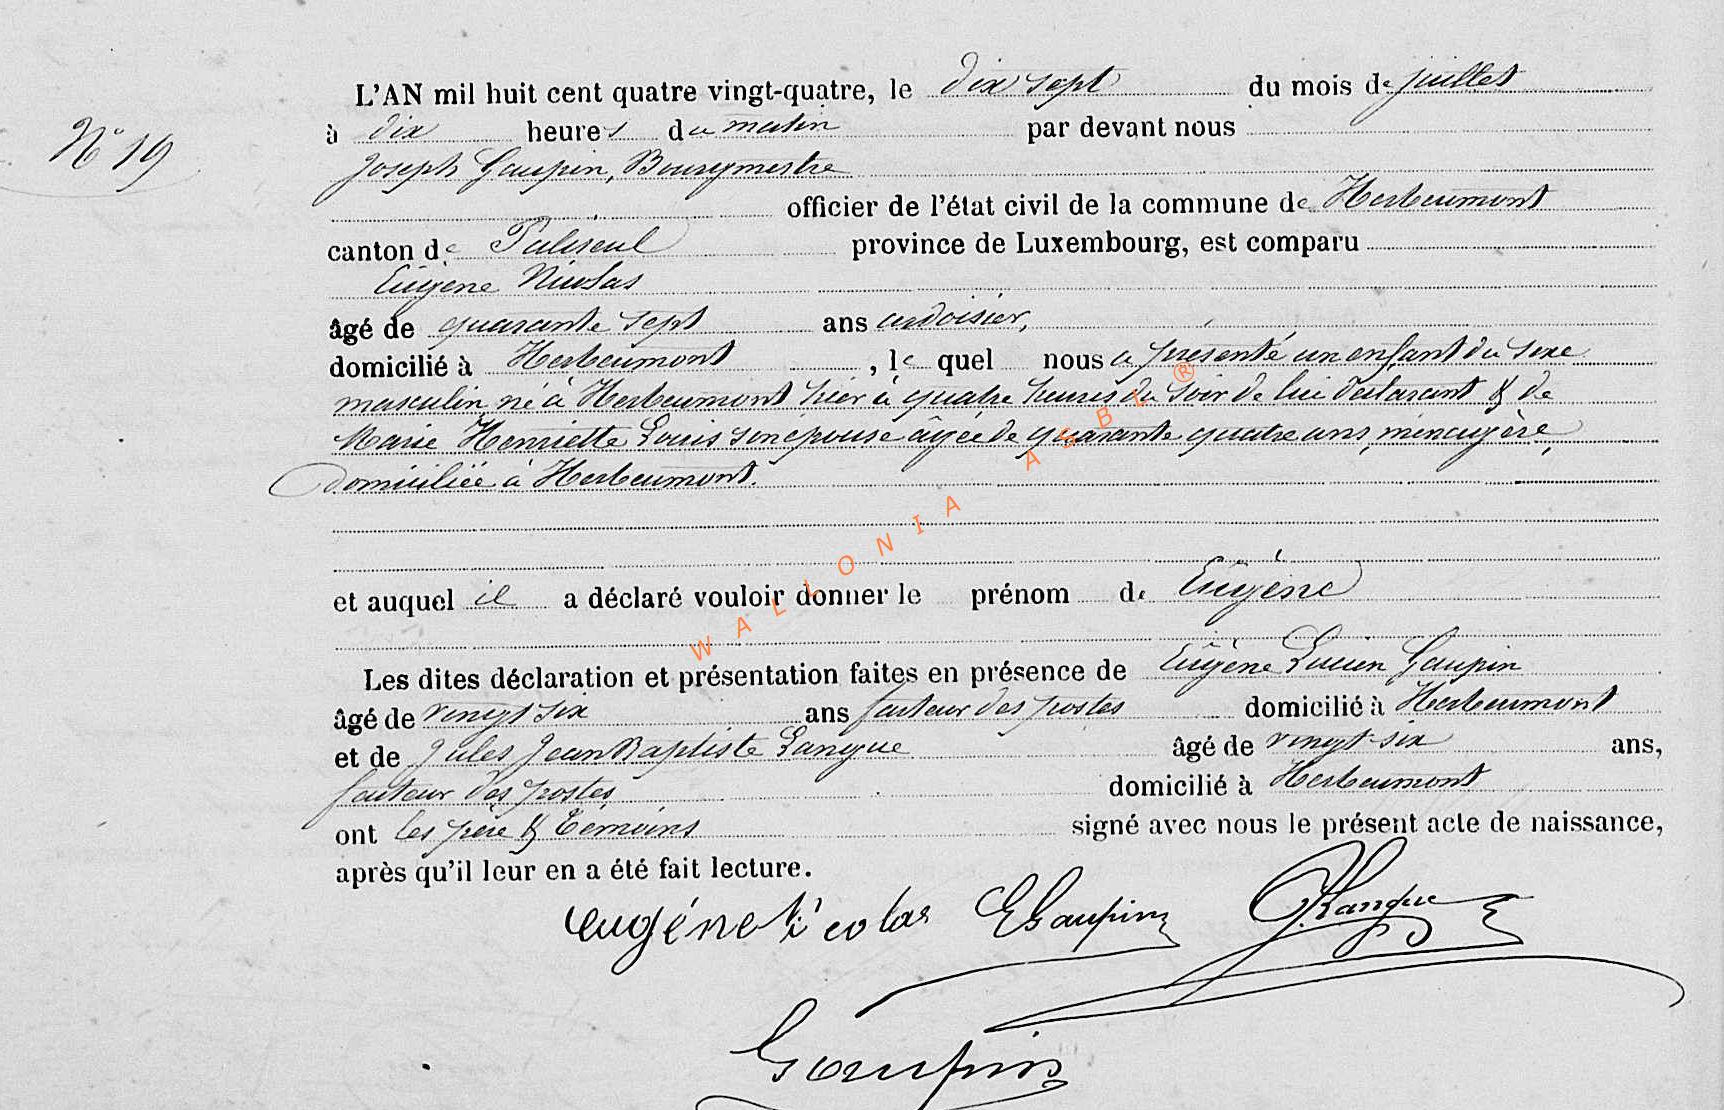 N° 19
L'AN mil huit cent quatre vingt-quatre, le dix sept du mois de juillet
à dix heures du matin par devant nous
Joseph Gaupin, Bourgmestre
officier de l'état civil de la commune de Herbeumont
canton de Paliseul province de Luxembourg, est comparu
Eugène Nicolas
âgé de quarante sept ans ardoisier,
domicilié à Herbeumont, le quel nous a présenté un enfant du sexe
masculin, né à Herbeumont hier à quatre heures du soir de lui déclarant & de
Marie Henriette Louis son épouse âgée de quarante quatre ans, ménagère,
domiciliée à Herbeumont.
et auquel il a déclaré vouloir donner le prénom de Eugène
Les dites déclaration et présentation faites en présence de Eugène Lucien Gaupin
âgé de vingt six ans facteur des postes domicilié à Herbeumont
et de Jules Jean Baptiste Langue âgé de vingt-six ans,
facteur des postes domicilié à Herbeumont
ont les père & témoins signé avec nous le présent acte de naissance,
après qu'il leur en a été fait lecture.
eugéne Nicolas EGaupin J.Langue
Gaupin
WALLONIA ASBL ®